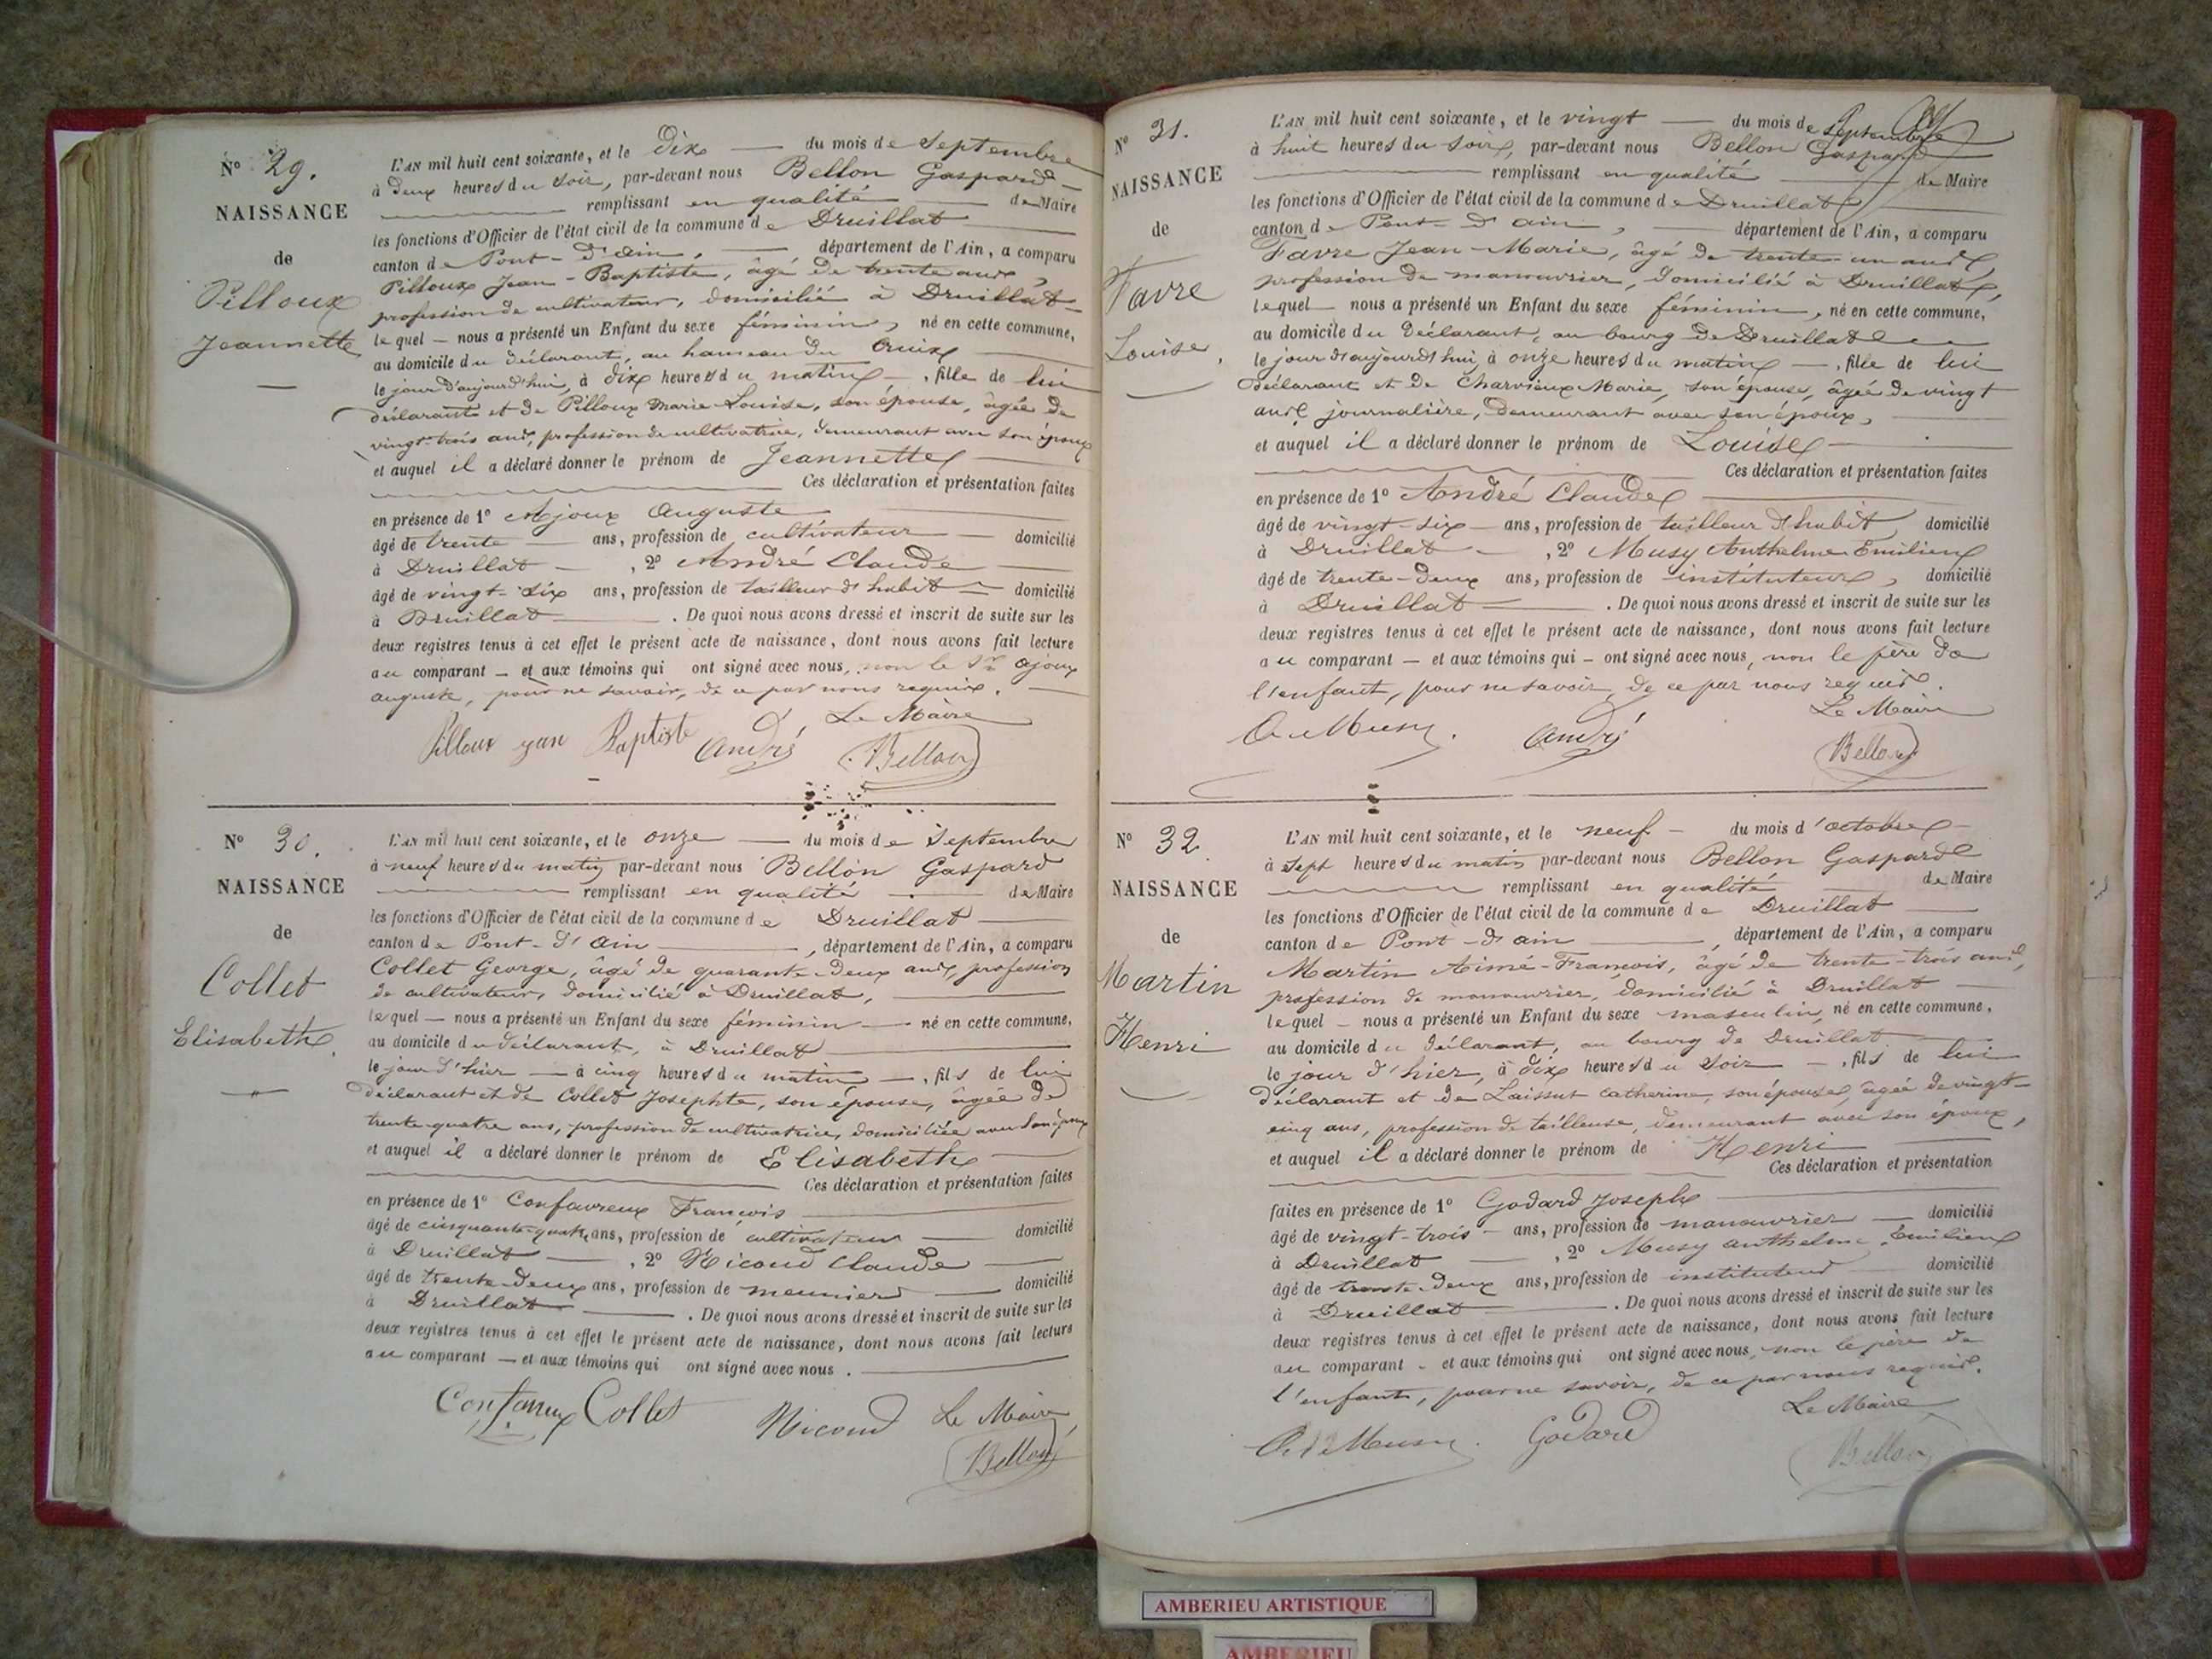 N° 29.
NAISSANCE
de
Pilloux
Jeannette
L'AN mil huit cent soixante, et le dix du mois de Septembre
à deux heures du soir, par-devant nous Bellon Gaspard
remplissant en qualité de Maire
les fonctions d'Officier de l'état civil de la commune de Druillat
canton de Pont-d'ain, département de l'Ain, a comparu
Pilloux Jean-Baptiste, âgé de trente ans,
profession de cultivateur, domicilié à Druillat
lequel — nous a présenté un Enfant du sexe féminin, né en cette commune,
au domicile du déclarant, au hameau du Cruix
le jour d'aujourd'hui, à dix heures du matin —, fille de lui
déclarant et de Pilloux Marie-Louise, son épouse, âgée de
vingt-trois ans, profession de cultivatrice, demeurant avec son époux
et auquel il a déclaré donner le prénom de Jeannette
Ces déclaration et présentation faites
en présence de 1° Ajoux Auguste
âgé de trente ans, profession de cultivateur domicilié
à Druillat, 2° André Claude
âgé de vingt-six ans, profession de tailleur d'habit domicilié
à Druillat. De quoi nous avons dressé et inscrit de suite sur les
deux registres tenus à cet effet le présent acte de naissance, dont nous avons fait lecture
au comparant — et aux témoins qui ont signé avec nous, non le Sr ajoux
auguste, pour ne savoir, de ce par nous requis.
Le Maire
Pilloux jean Baptiste André Bellon
N° 30.
NAISSANCE
de
Collet
Elisabeth
L'AN mil huit cent soixante, et le onze du mois de Septembre
à neuf heures du matin par-devant nous Bellon Gaspard
remplissant en qualité de Maire
les fonctions d'Officier de l'état civil de la commune de Druillat
canton de Pont-d'ain, département de l'Ain, a comparu
Collet George, âgé de quarante-deux ans, profession
de cultivateur, domicilié à Druillat,
lequel — nous a présenté un Enfant du sexe féminin né en cette commune,
au domicile du déclarant, à Druillat
le jour d'hier — à cinq heures du matin —, fils de lui
déclarant et de Collet Josephte, son épouse, âgée de
trente-quatre ans, profession de cultivatrice, domiciliée avec son époux
et auquel il a déclaré donner le prénom de Elisabeth
Ces déclaration et présentation faites
en présence de 1° Confavreux François
âgé de cinquante-quatre ans, profession de cultivateur domicilié
à Druillat, 2° Nicoud Claude
âgé de trente-deux ans, profession de meunier domicilié
à Druillat. De quoi nous avons dressé et inscrit de suite sur les
deux registres tenus à cet effet le présent acte de naissance, dont nous avons fait lecture
au comparant — et aux témoins qui ont signé avec nous.
Confavreux Collet Nicoud Le Maire
Bellon
N° 31.
NAISSANCE
de
Favre
Louise,
L'AN mil huit cent soixante, et le vingt du mois de Septembre
à huit heures du soir, par-devant nous Bellon Gaspard
remplissant en qualité de Maire
les fonctions d'Officier de l'état civil de la commune de Druillat
canton de Pont-d'ain, département de l'Ain, a comparu
Favre Jean-Marie, âgé de trente-un ans,
profession de manouvrier, domicilié à Druillat,
lequel nous a présenté un Enfant du sexe féminin, né en cette commune,
au domicile du déclarant, au bourg de Druillat
le jour d'aujourd'hui, à onze heures du matin —, fille de lui
déclarant et de Charvieux Marie, son épouse, âgée de vingt
ans, journalière, demeurant avec son époux,
et auquel il a déclaré donner le prénom de Louise
Ces déclaration et présentation faites
en présence de 1° André Claude
âgé de vingt-six ans, profession de tailleur d'habit domicilié
à Druillat, 2° Musy Anthelme Emilien
âgé de trente-deux ans, profession de instituteur, domicilié
à Druillat. De quoi nous avons dressé et inscrit de suite sur les
deux registres tenus à cet effet le présent acte de naissance, dont nous avons fait lecture
au comparant — et aux témoins qui — ont signé avec nous, non le père de
l'enfant, pour ne savoir, de ce par nous requis.
Le Maire
Musy. André Bellon
N° 32.
NAISSANCE
de
Martin
Henri
L'AN mil huit cent soixante, et le neuf — du mois d'octobre
à sept heures du matin par-devant nous Bellon Gaspard
remplissant en qualité de Maire
les fonctions d'Officier de l'état civil de la commune de Druillat
canton de Pont-d'ain, département de l'Ain, a comparu
Martin Aimé-François, âgé de trente-trois ans,
profession de manouvrier, domicilié à Druillat
lequel — nous a présenté un Enfant du sexe masculin, né en cette commune,
au domicile du déclarant, au bourg de Druillat
le jour d'hier, à dix heures du soir —, fils de lui
déclarant et de Laissut Catherine, son épouse, âgée de vingt-
cinq ans, profession de tailleuse, demeurant avec son époux,
et auquel il a déclaré donner le prénom de Henri
Ces déclaration et présentation
faites en présence de 1° Godard Joseph
âgé de vingt-trois ans, profession de manouvrier domicilié
à Druillat, 2° Musy anthelme Emilien
âgé de trente-deux ans, profession de instituteur domicilié
à Druillat. De quoi nous avons dressé et inscrit de suite sur les
deux registres tenus à cet effet le présent acte de naissance, dont nous avons fait lecture
au comparant — et aux témoins qui ont signé avec nous, non le père de
l'enfant, pour ne savoir, de ce par nous requis.
Le Maire
Musy. Godard Bellon
AMBERIEU ARTISTIQUE
AMBERIEU